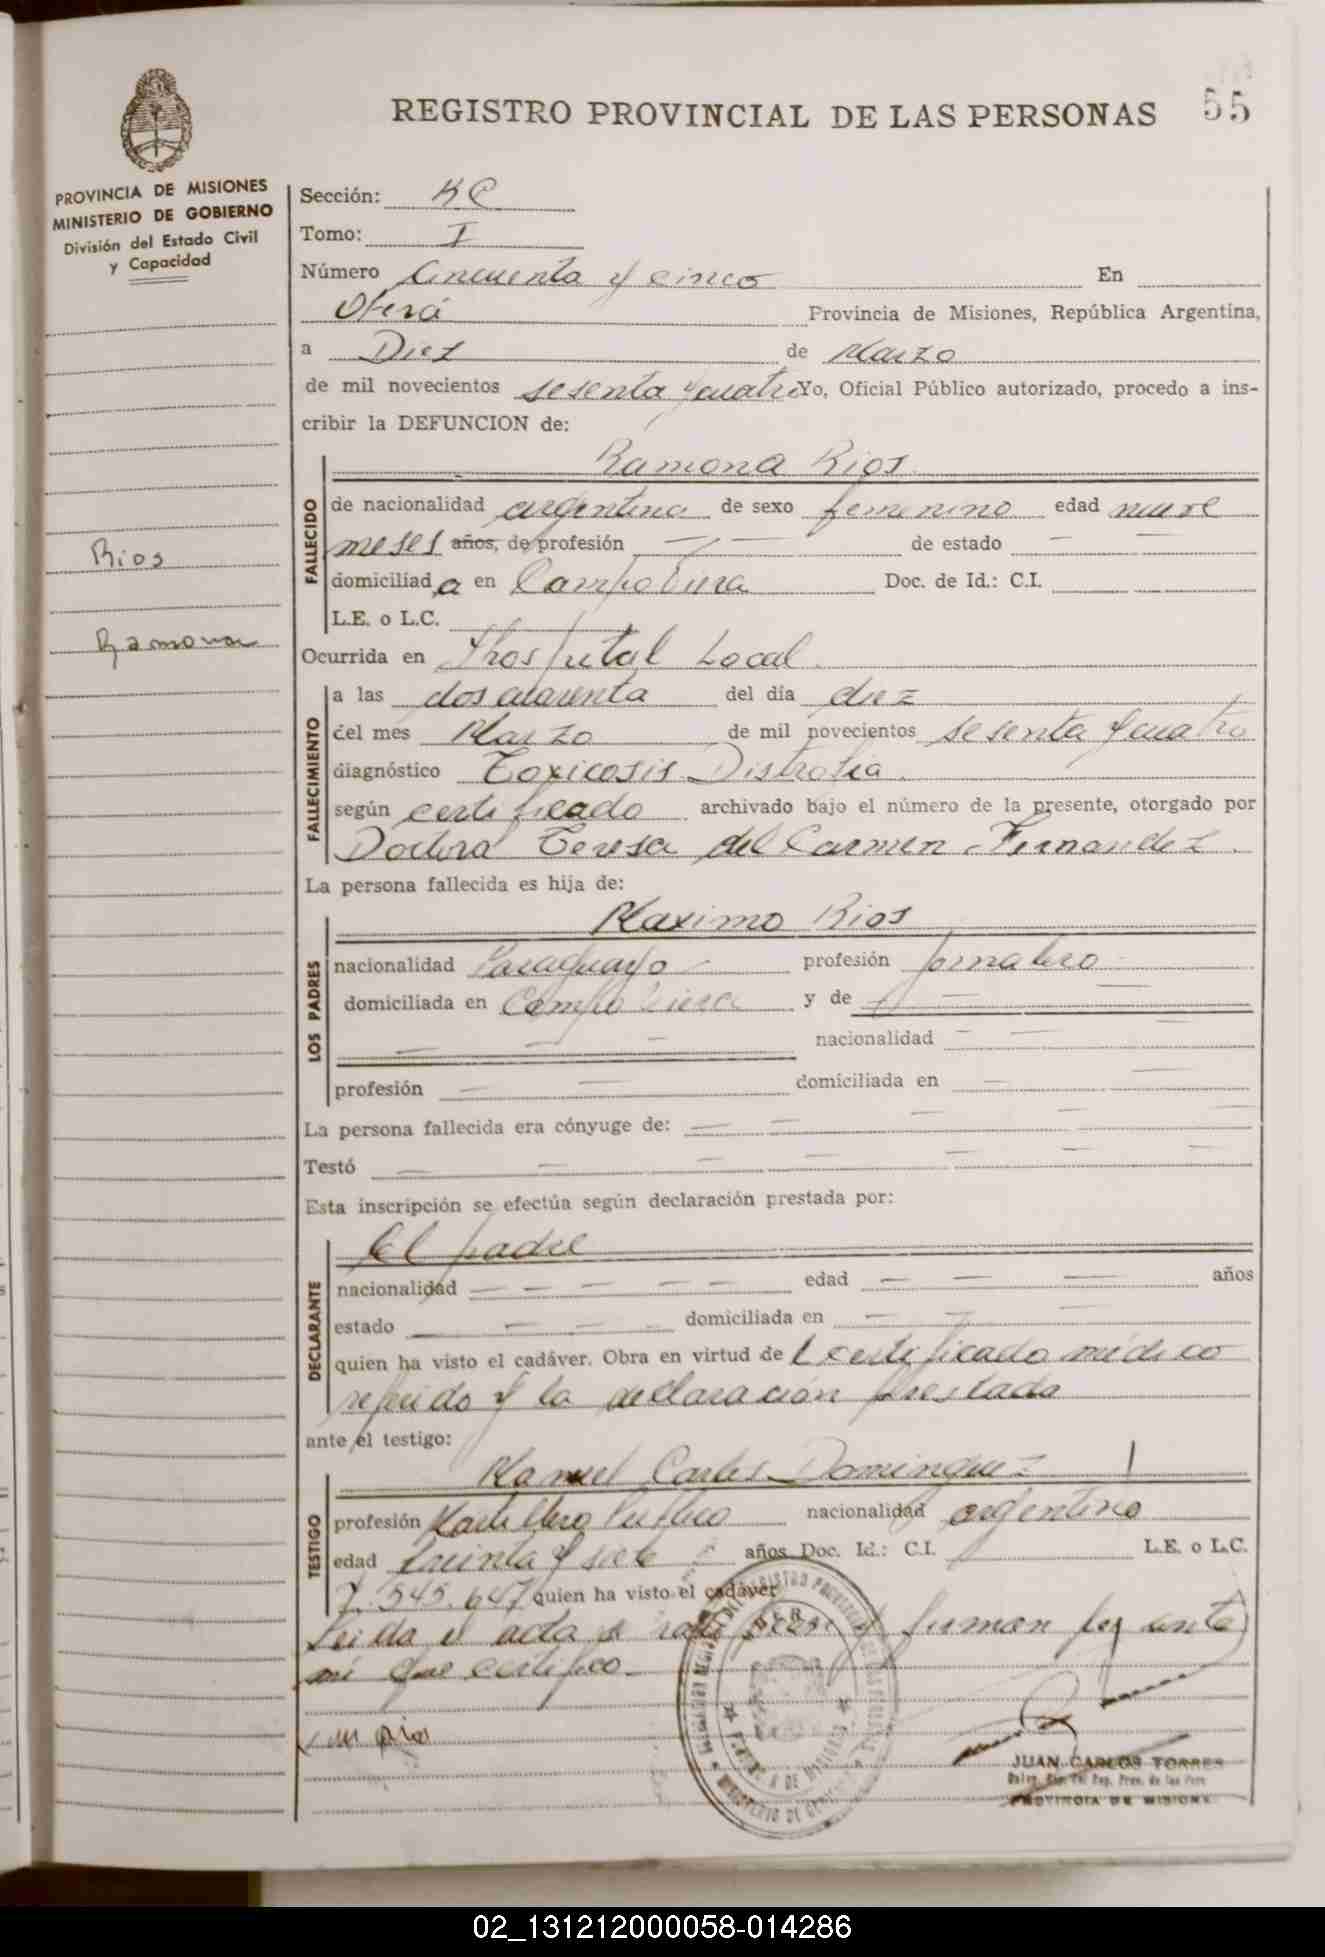 REGISTRO PROVINCIAL DE LAS PERSONAS 55
PROVINCIA DE MISIONES
MINISTERIO DE GOBIERNO
División del Estado Civil
y Capacidad
Rios
Ramona
Sección: KC
Tomo: I
Número Cincuenta y cinco En
Oberá Provincia de Misiones, República Argentina,
a Diez de Marzo
de mil novecientos sesenta y cuatro Yo, Oficial Público autorizado, procedo a ins-
cribir la DEFUNCION de:
Ramona Rios
FALLECIDO
de nacionalidad argentina de sexo femenino edad nueve
meses años, de profesión — — de estado — —
domiciliad a en Campo Viera Doc. de Id.: C.I.
L.E. o L.C.
Ocurrida en Hospital Local
FALLECIMIENTO
a las dos cuarenta del día diez
del mes Marzo de mil novecientos sesenta y cuatro
diagnóstico Toxicosis Distrofia
según certificado archivado bajo el número de la presente, otorgado por
Doctora Teresa del Carmen Fernandez.
La persona fallecida es hija de:
Maximo Rios
LOS PADRES
nacionalidad Paraguayo profesión Jornalero
domiciliada en Campo Viera y de — —
— — — nacionalidad — — —
profesión — — domiciliada en — —
La persona fallecida era cónyuge de: — — — — —
Testó — — — — — —
Esta inscripción se efectúa según declaración prestada por:
El padre
DECLARANTE
nacionalidad — — — — — edad — — — años
estado — — — domiciliada en — — —
quien ha visto el cadáver. Obra en virtud de l certificado médico
referido y la declaración prestada
ante el testigo:
Manuel Carlos Dominguez
TESTIGO
profesión Martillero Publico nacionalidad argentino
edad treinta y siete años Doc. Id.: C.I. L.E. o L.C.
7.545.647 quien ha visto el cadáver
Leida el acta la y firman por ante
mi que certifico.
M Rios
JUAN CARLOS TORRES
PROVINCIA DE MISIONES
02_131212000058-014286